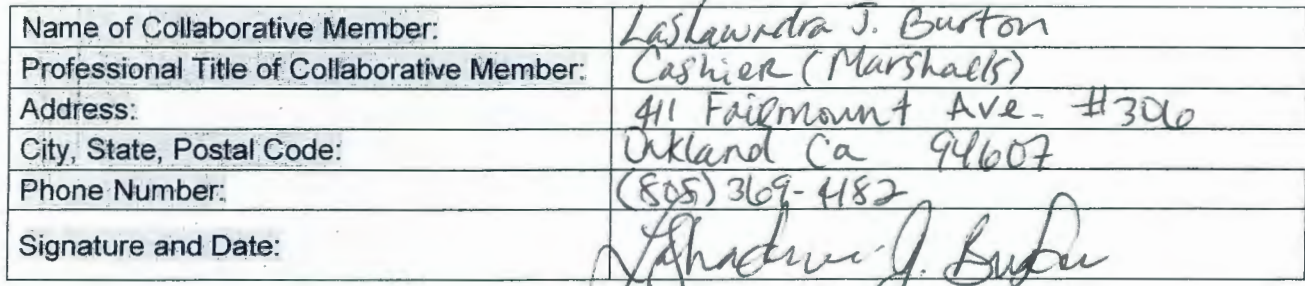 Name of Collaborative Member: Lashawndra J. Burton
Professional Title of Collaborative Member: Cashier (Marshalls)
Address: 411 Fairmount Ave. #306
City, State, Postal Code: Oakland Ca 94607
Phone Number: (805) 369-4182
Signature and Date: J. Burton